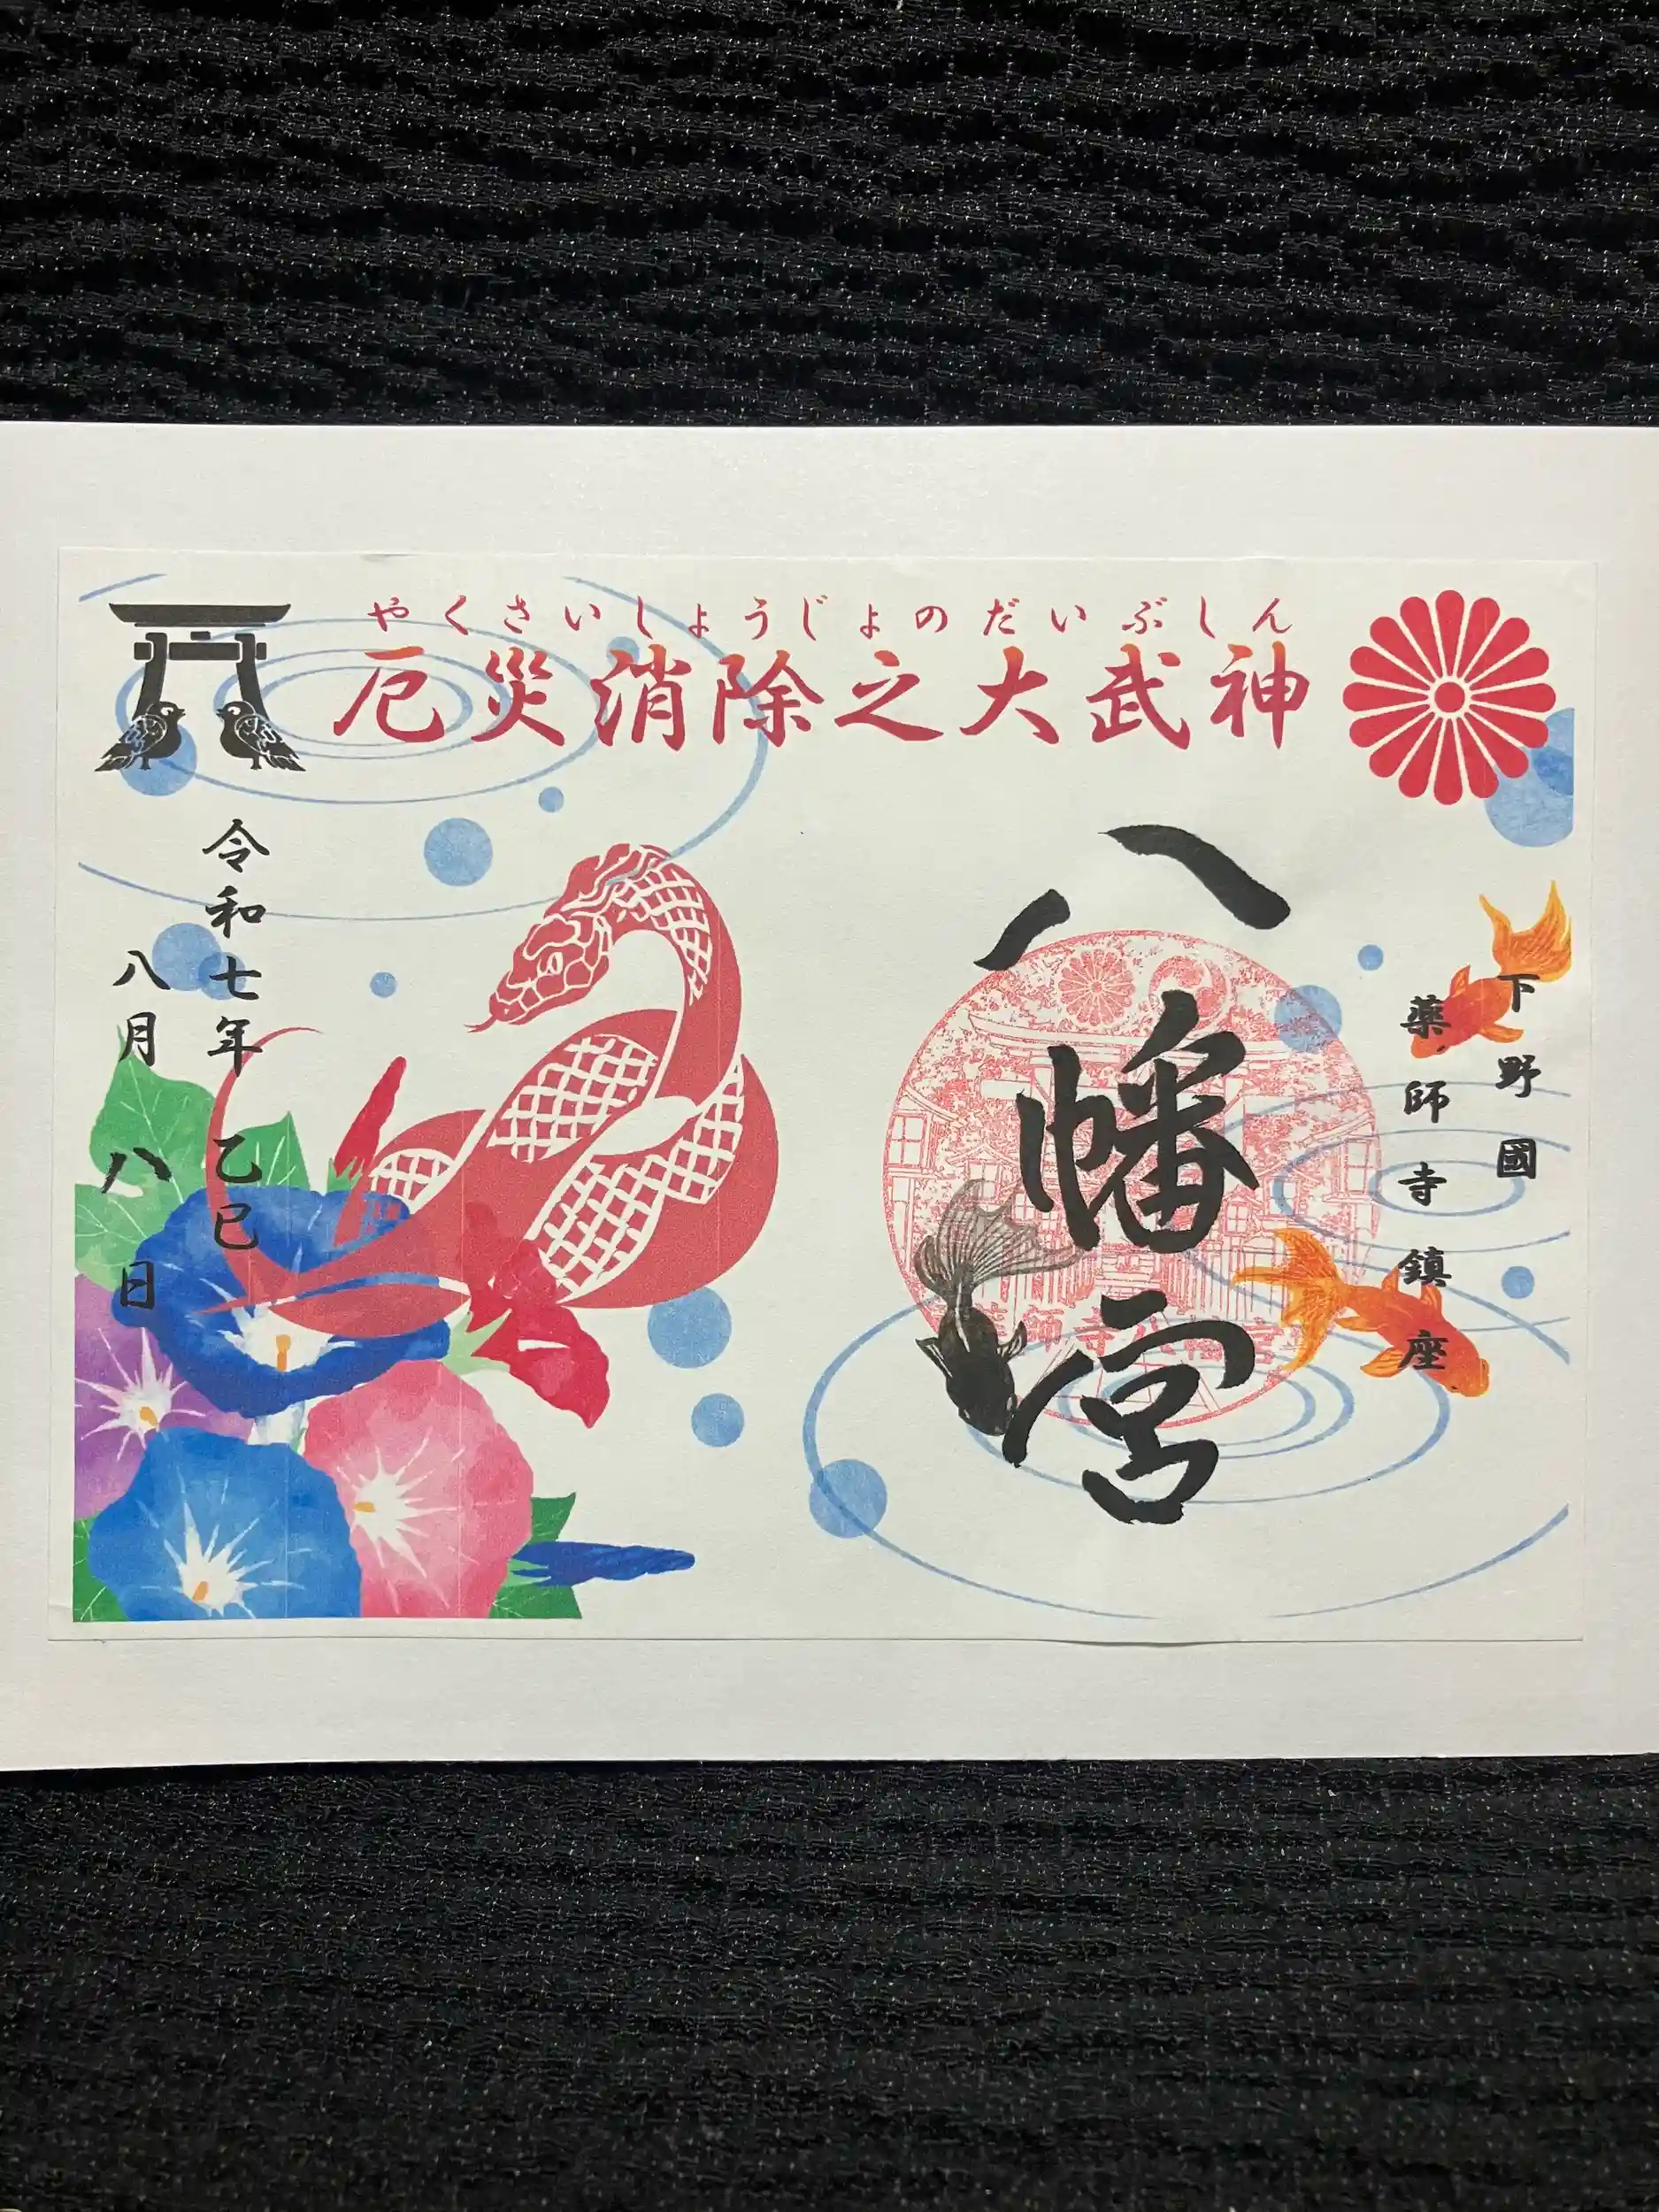 やくさいしょうじょのだいぶしん
厄災消除之大武神
下野國
薬師寺鎮座
八幡宮
薬師寺八幡宮
令和七年 乙巳
八月八日